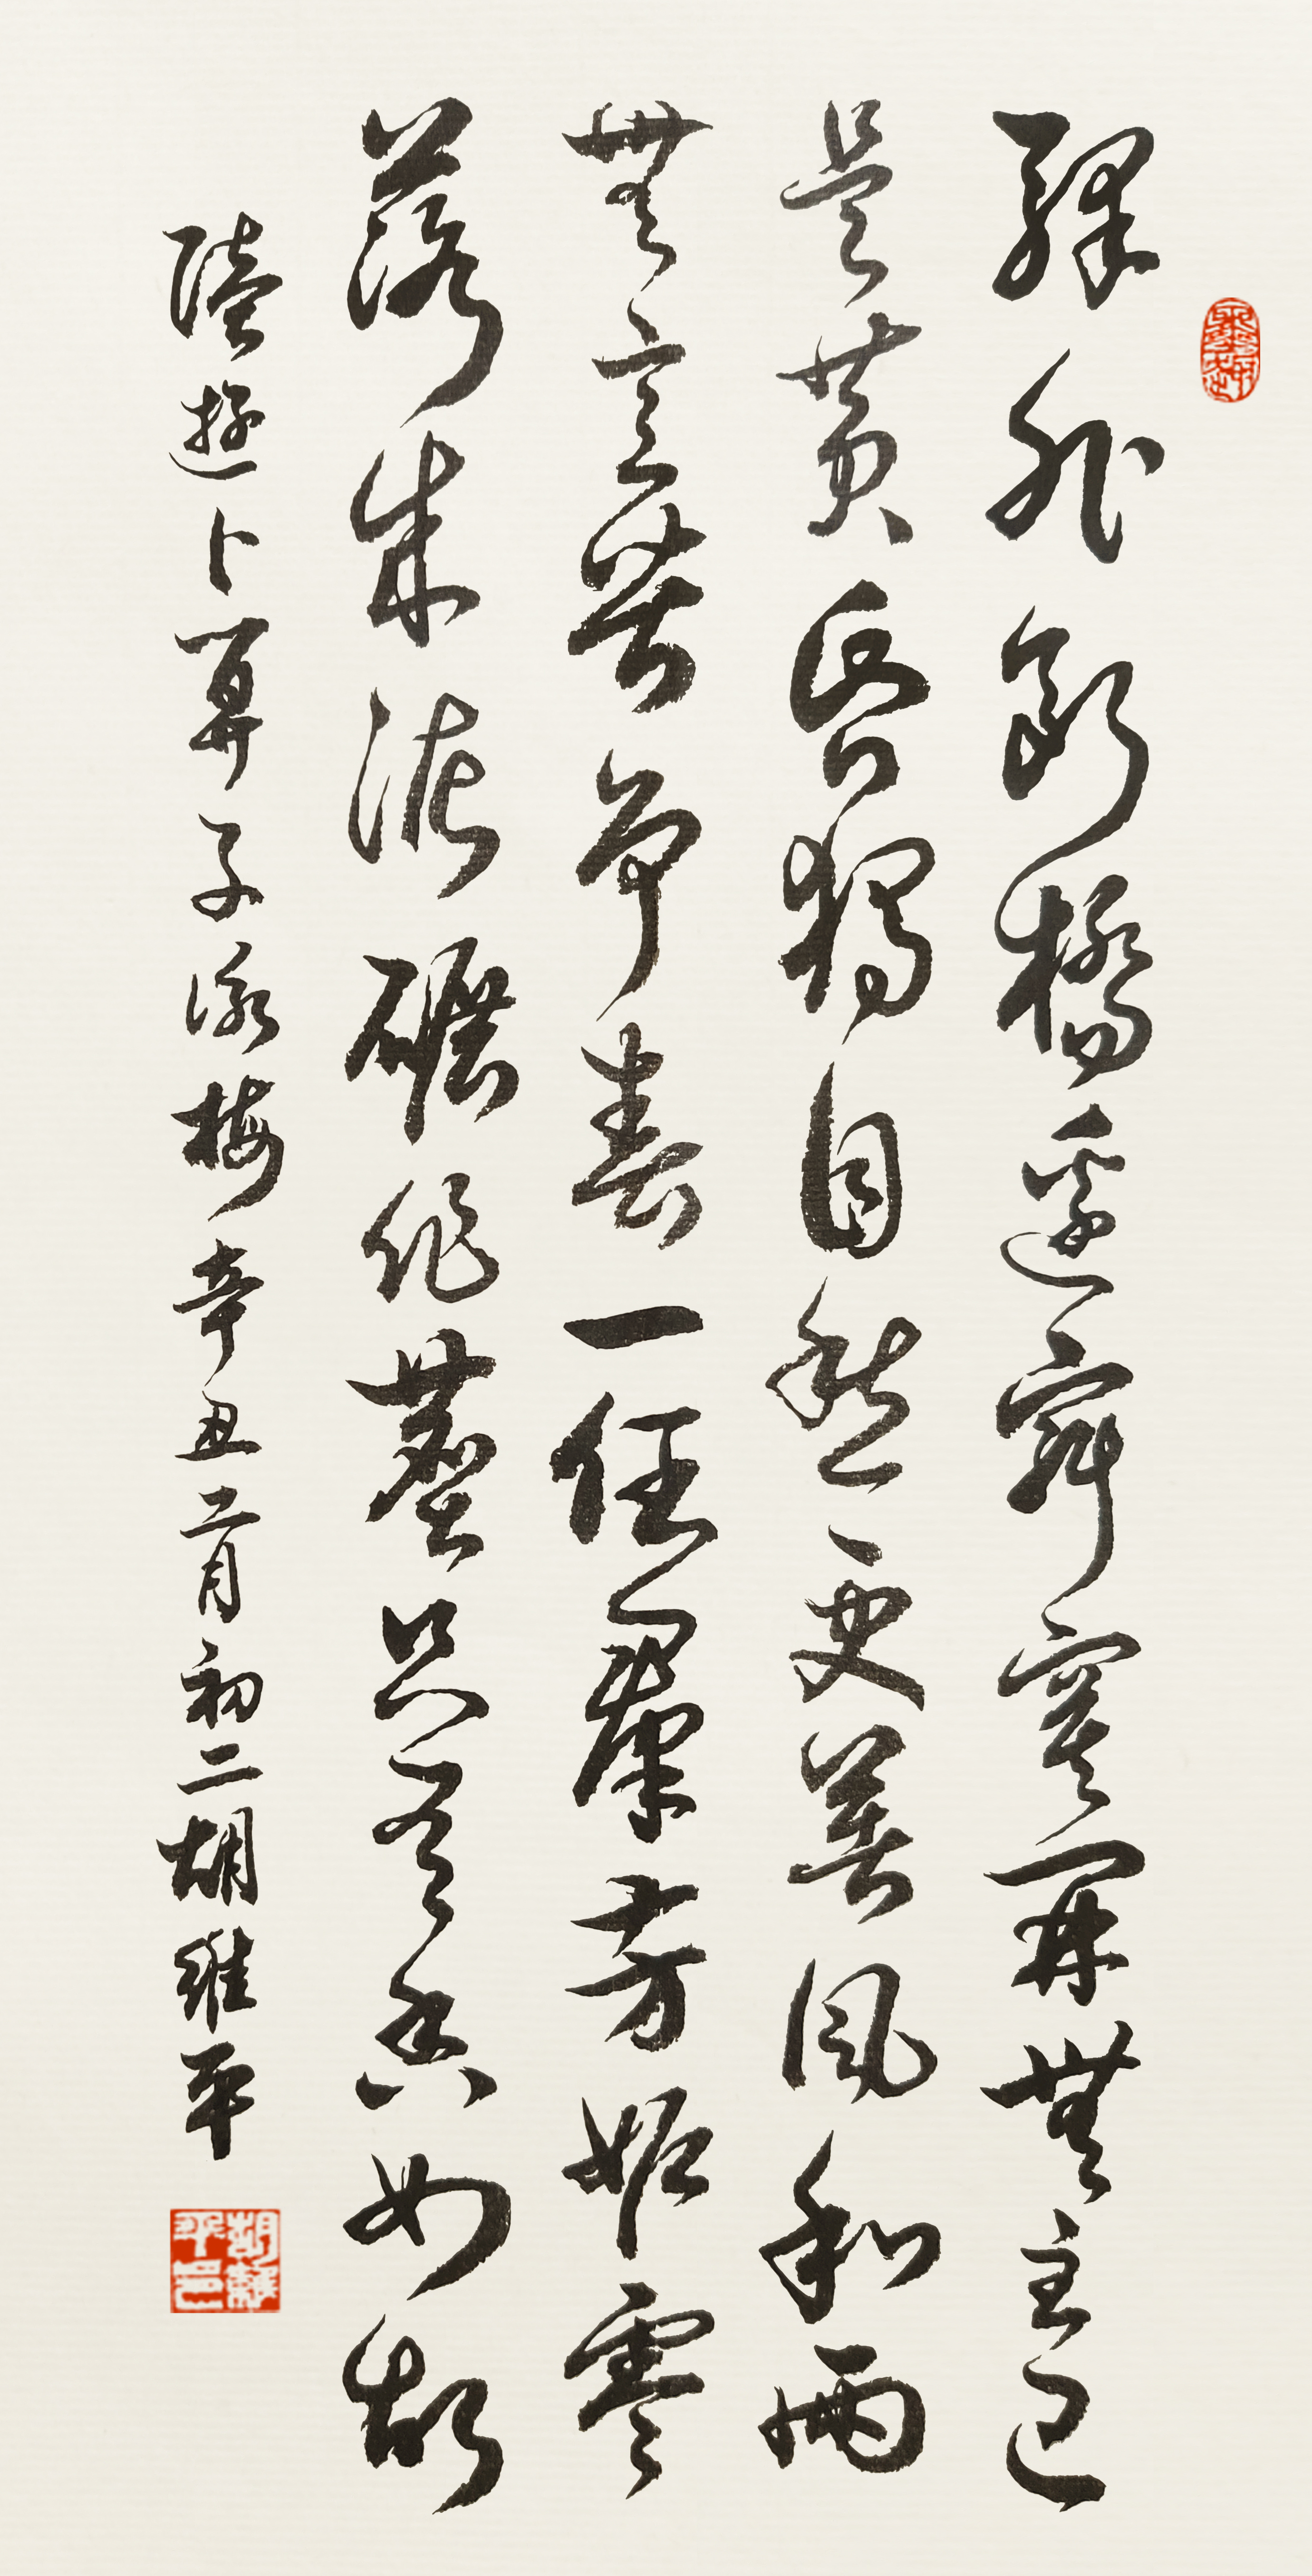 驛外斷橋邊寂寞開無主已
是黃昏獨自愁更著風和雨
無意苦爭春一任群芳妬零
落成泥碾作塵只有香如故
陸遊卜算子詠梅辛丑二月初二胡維平
胡維平印